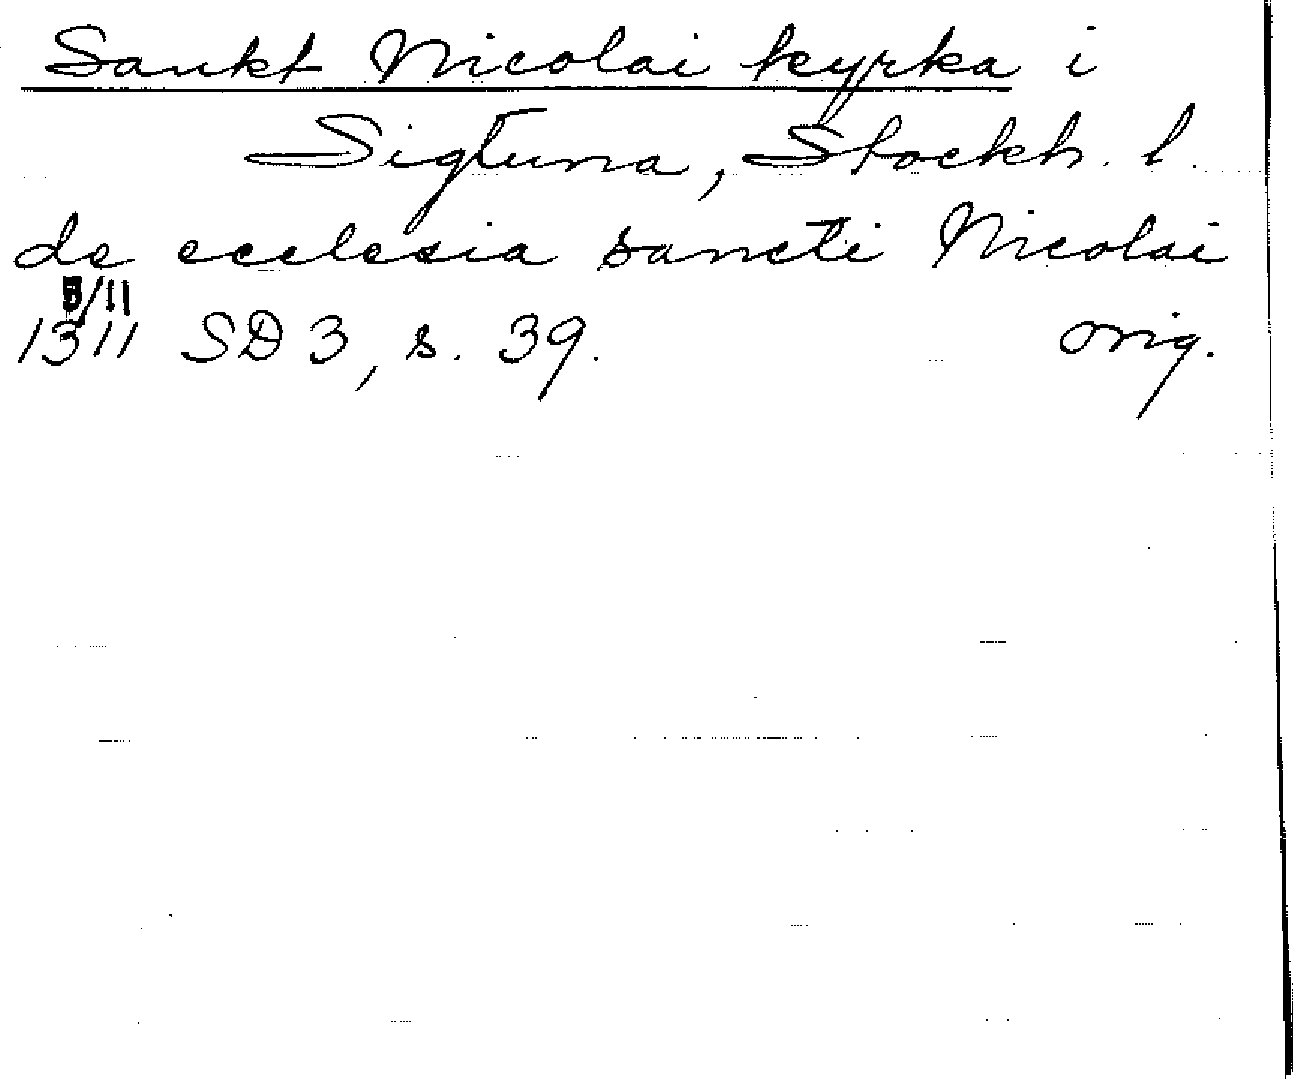 Sankt Nicolai kyrka i
Sigtuna, Stockh. l.
de ecclesia sancti Nicolai
/11
1311 SD 3, s. 39. orig.